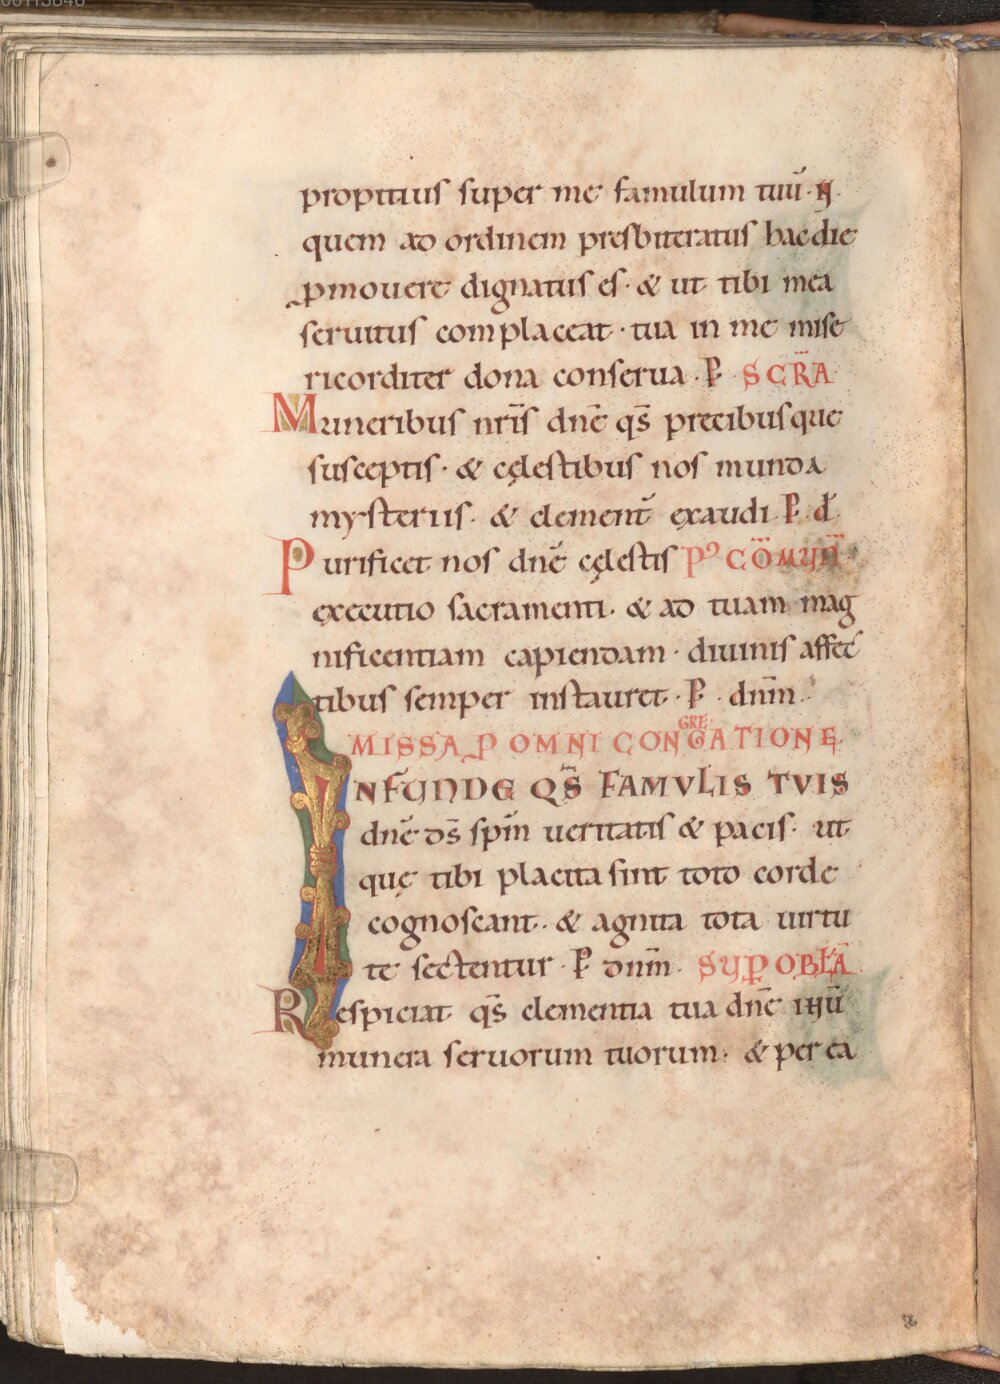 propitius super me famulum tuū · N ·
quem ad ordinem presbiteratus hac die
ꝓmouere dignatus es · & ut tibi mea
seruitus complaceat · tua in me mise
ricorditer dona conserua · P SCR̄A
Muneribus nr̄is dnē qs̄ precibusque
susceptis · & cęlestibus nos munda
mysteriis · & clement̄ exaudi · P d̄
Purificet nos dnē cęlestis P᾿ CŌMUN̄
executio sacramenti · & ad tuam mag
nificentiam capiendam · diuinis affec̄
tibus semper instauret · P dnm̄ ·
MISSA P OMNI CONGATIONE ·
GRE
INFUNDE QS̄ FAMVLIS TVIS
dnē ds̄ spm̄ ueritatis & pacis · ut
quę tibi placita sint toto corde
cognoscant · & agnita tota uirtu
te sectentur · P dnm̄ · SUP OBLĀ
Respiciat qs̄ clementia tua dnē ihū
munera seruorum tuorum · & per ea